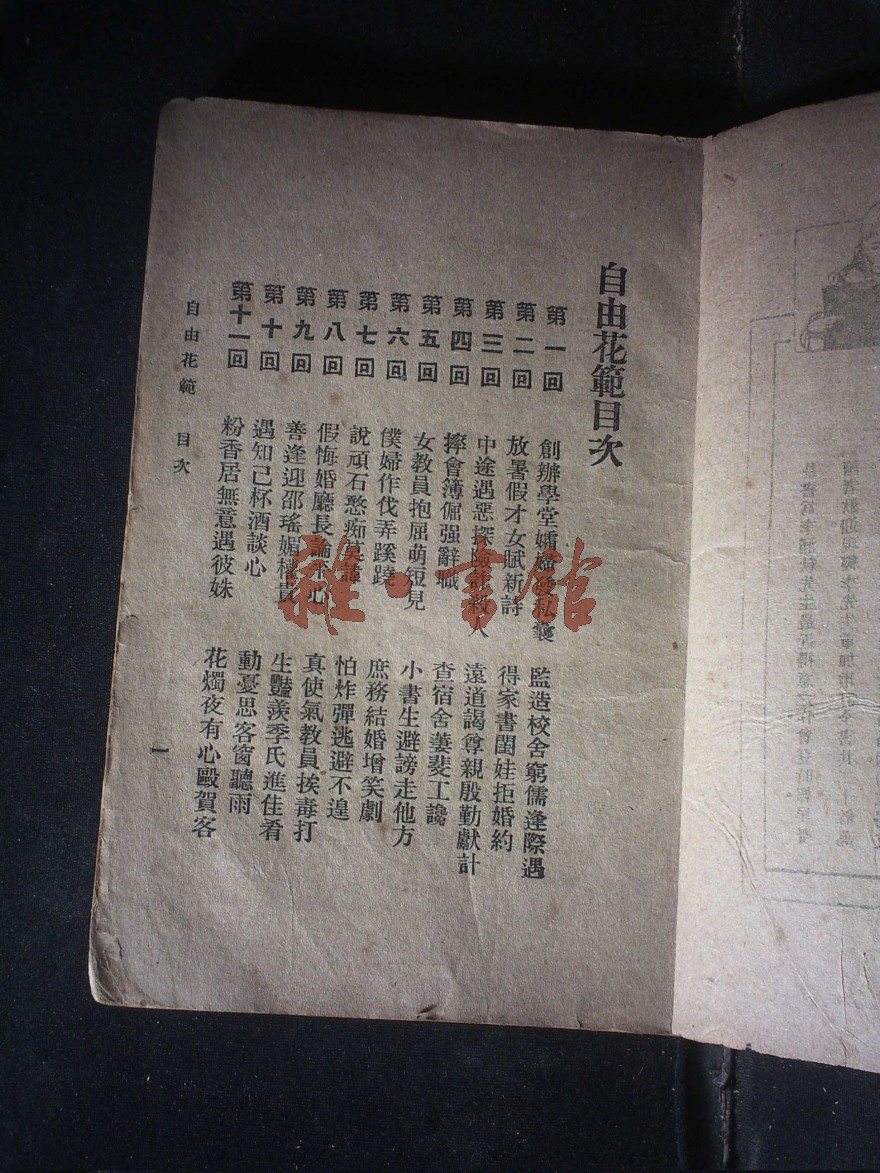 自由花範目次
第一回 創辦學堂孀婦發私囊 監造校舍窮儒逢際遇
第二回 放暑假才女賦新詩 得家書閨娃拒婚約
第三回 中途遇惡探險詐殺人 遠道謁尊親殷勤獻計
第四回 摔會簿倔强辭職 查宿舍萋斐工讒
第五回 女教員抱屈萌短見 小書生避謗走他方
第六回 僕婦作伐弄蹊蹺 庶務結婚增笑劇
第七回 說頑石憨痴莫諱 怕炸彈逃避不遑
第八回 假悔婚廳長論 心 真使氣教員挨毒打
第九回 善逢迎邵瑤媚權貴 生豔羨季氏進佳肴
第十回 遇知己杯酒談心 動憂思客窗聽雨
第十一回 粉香居無意遇彼姝 花燭夜有心毆賀客
自由花範 目次
一
雜·書館